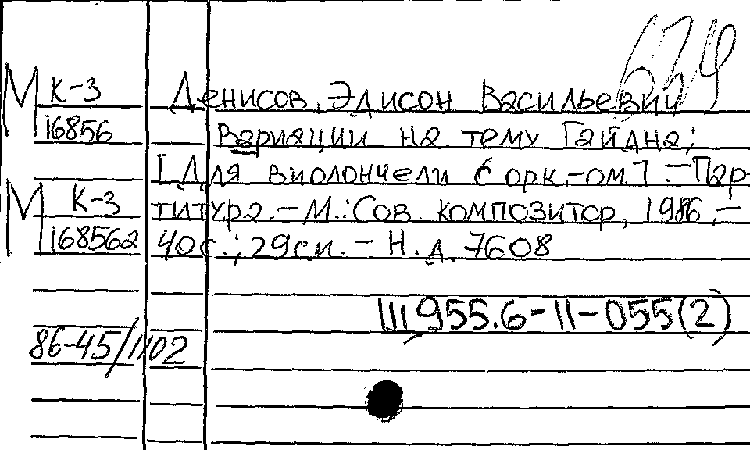 679
М К-3 Денисов, Эдисон Васильевич
16856 Вариации на тему Гайдна;
[Для виолончели с орк.-ом.] – Пар-
М К-3 титура. – М.: Сов. композитор, 1986. –
168562 40с.; 29см. – Н.д. 7608
Щ955.6-11-055(2)
86-45/1102